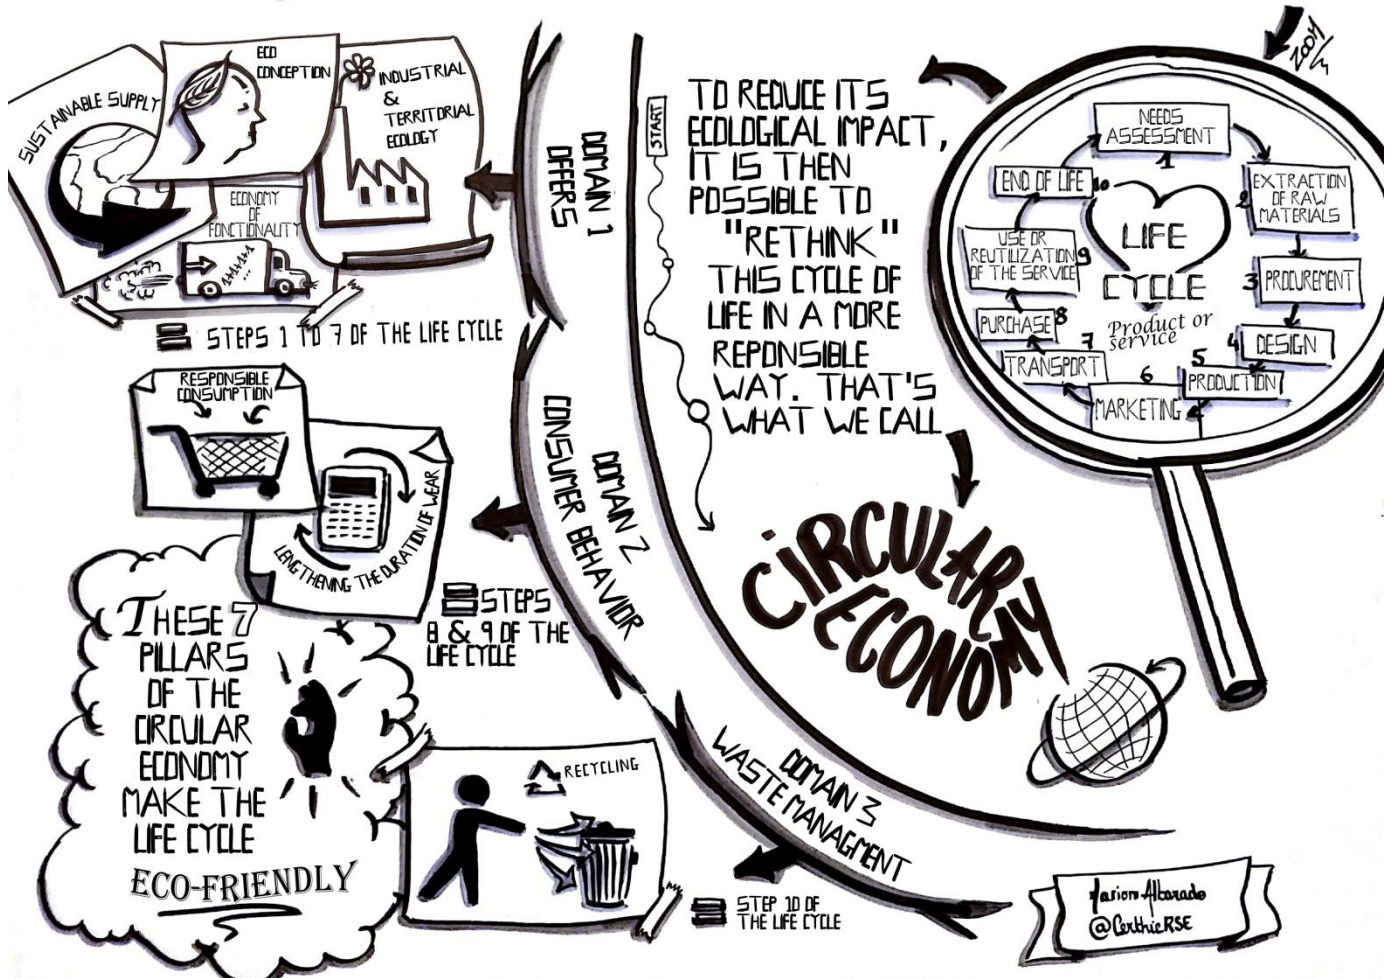 ZOOM
NEEDS
ASSESSMENT
1
2
EXTRACTION
OF RAW
MATERIALS
3
PROCUREMENT
4
DESIGN
5
PRODUCTION
6
MARKETING
7
TRANSPORT
PURCHASE 8
USE OR
REUTILIZATION 9
OF THE SERVICE
END OF LIFE 10
LIFE
CYCLE
Product or
service
START
TO REDUCE ITS
ECOLOGICAL IMPACT,
IT IS THEN
POSSIBLE TO
"RETHINK"
THIS CYCLE OF
LIFE IN A MORE
REPONSIBLE
WAY. THAT'S
WHAT WE CALL
CIRCULARY
ECONOMY
DOMAIN 1
OFFERS
SUSTAINABLE SUPPLY
ECO
CONCEPTION
INDUSTRIAL
&
TERRITORIAL
ECOLOGY
ECONOMY
OF
FONCTIONALITY
= STEPS 1 TO 7 OF THE LIFE CYCLE
DOMAIN 2
CONSUMER BEHAVIOR
RESPONSIBLE
CONSUMPTION
LENGTHENING THE DURATION OF WEAR
= STEPS
8 & 9 OF THE
LIFE CYCLE
DOMAIN 3
WASTE MANAGMENT
RECYCLING
= STEP 10 OF
THE LIFE CYCLE
THESE 7
PILLARS
OF THE
CIRCULAR
ECONOMY
MAKE THE
LIFE CYCLE
ECO-FRIENDLY
Marion Albarado
@CerthicRSE